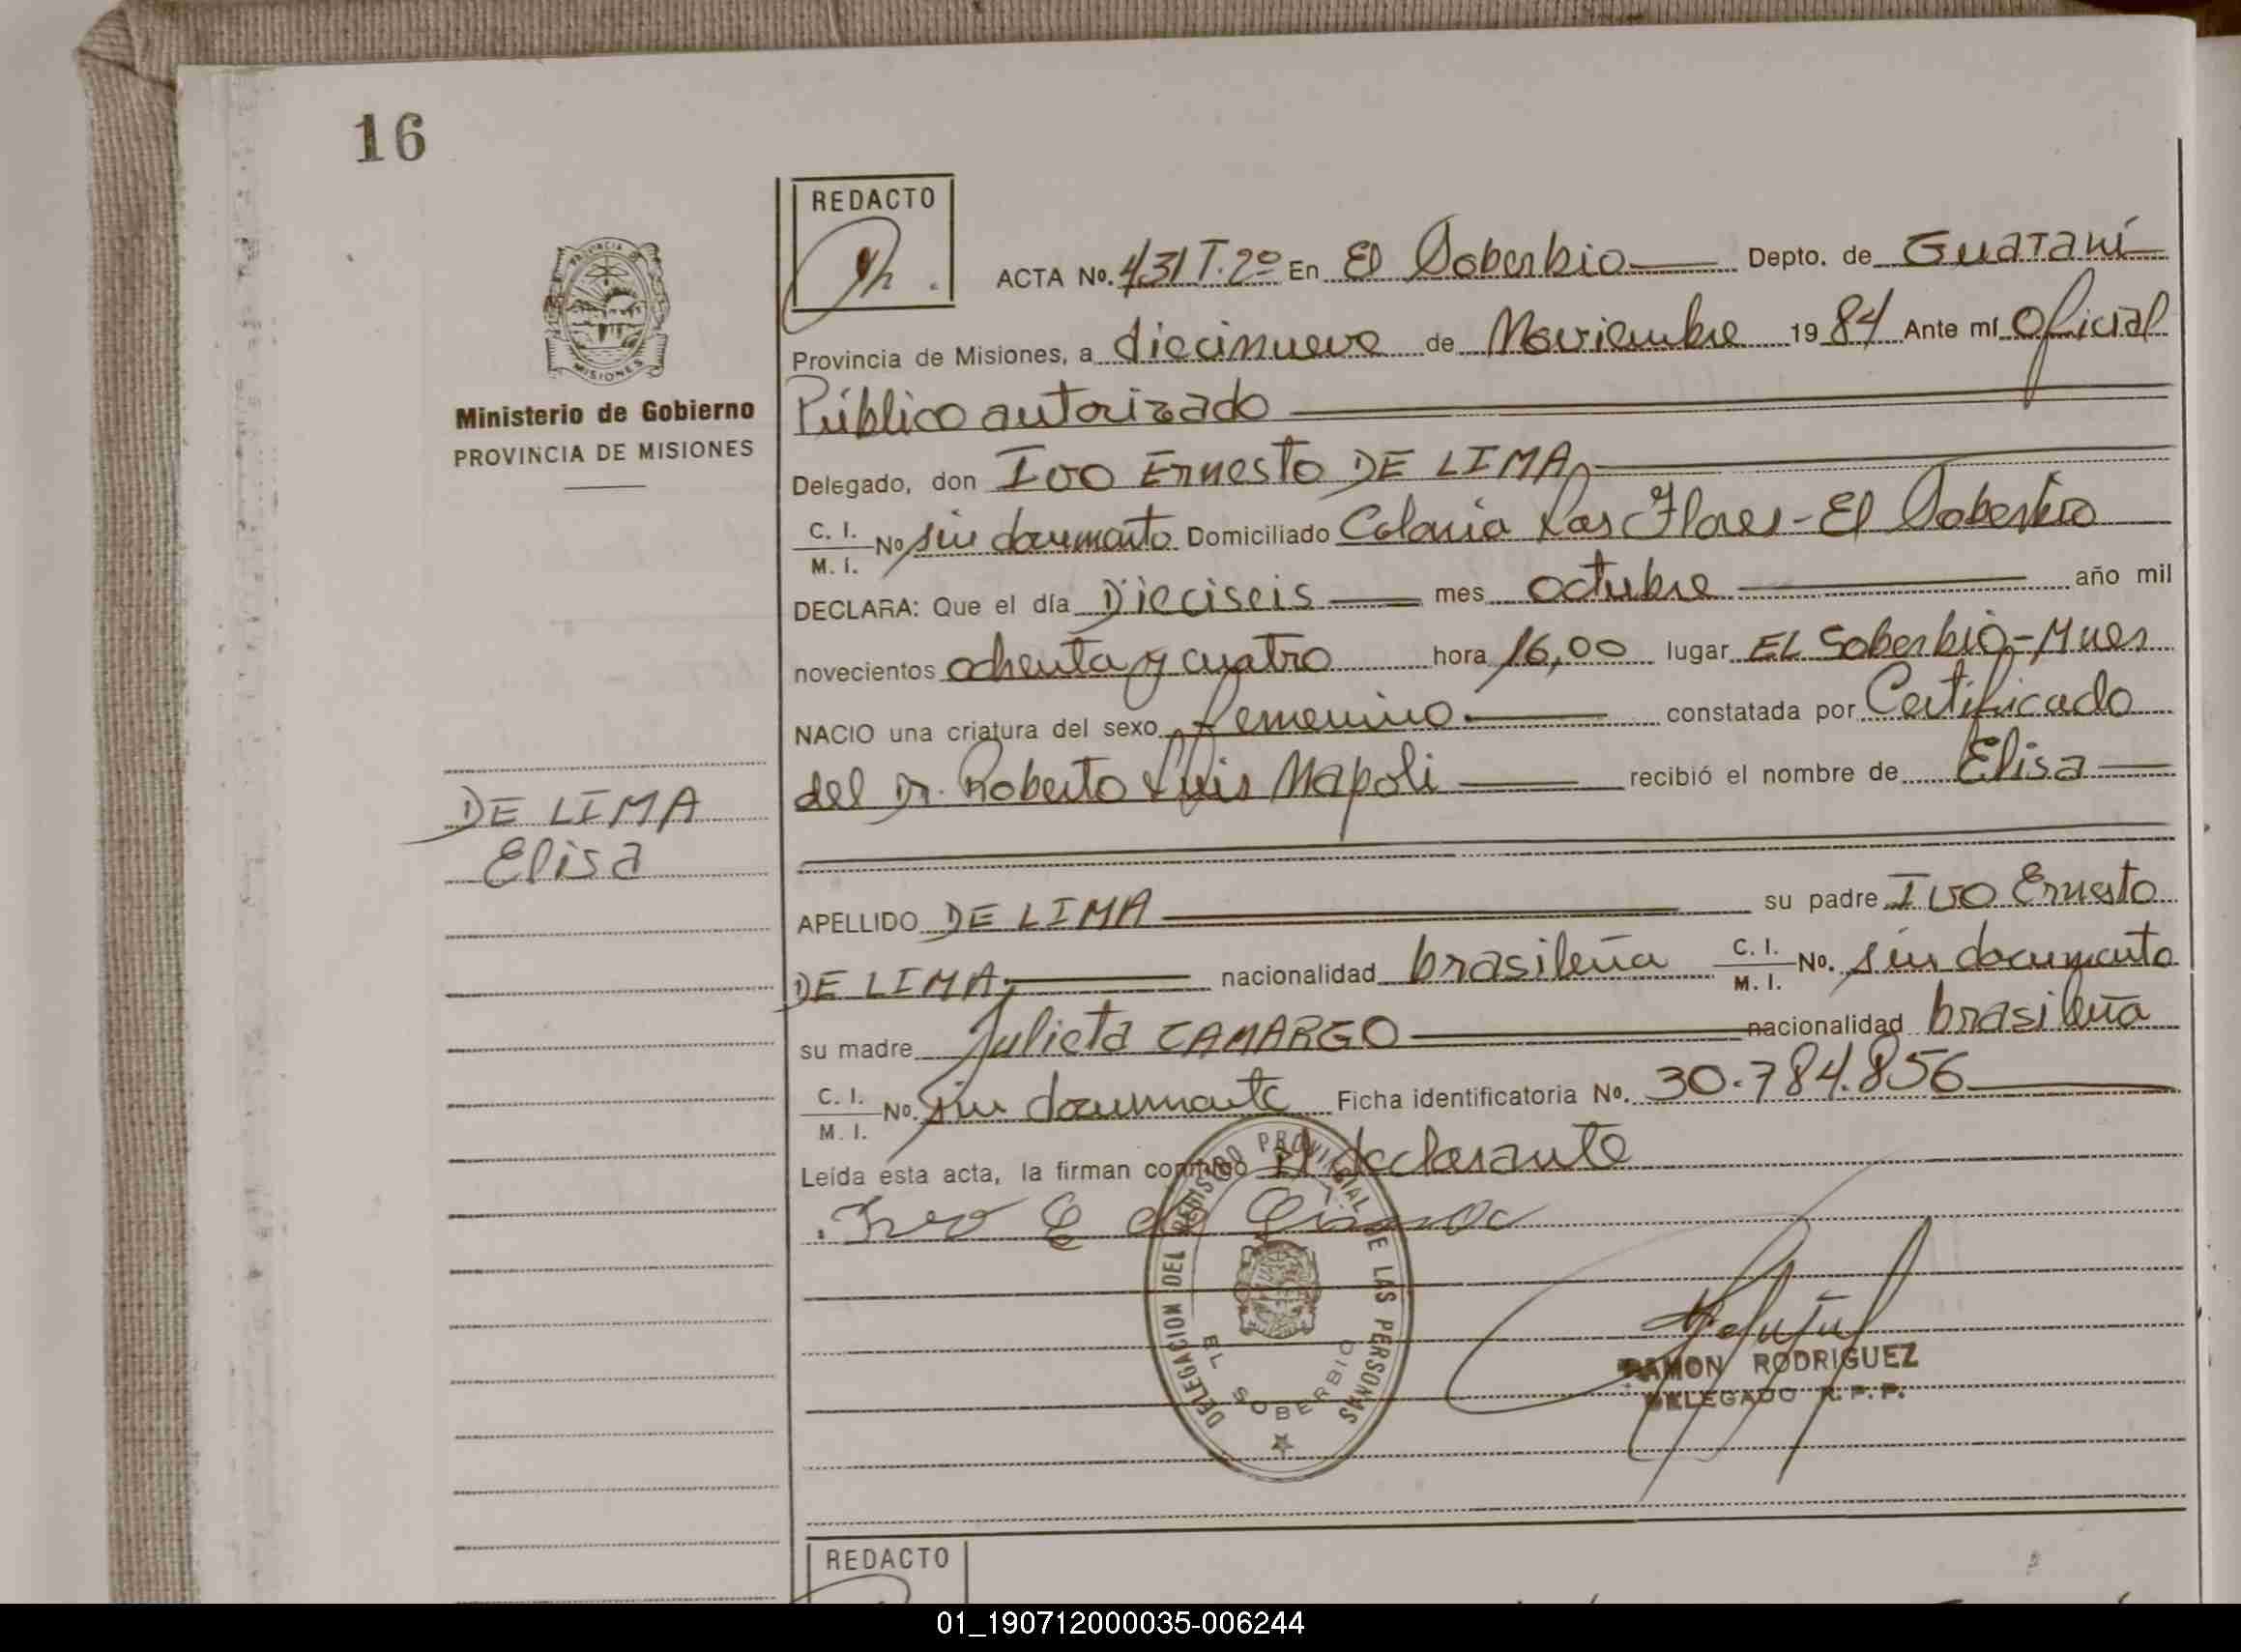 16
REDACTO
ACTA Nº. 431 T. 2º En El Soberbio Depto. de Guaraní
Provincia de Misiones, a diecinueve de Noviembre 1984 Ante mí Oficial
Público autorizado
Delegado, don Ivo Ernesto DE LIMA
C. I. M. I. Nº sin documento Domiciliado Colonia Las Flores - El Soberbio
DECLARA: Que el día Dieciseis mes octubre año mil
novecientos ochenta y cuatro hora 16,00 lugar EL Soberbio - Mnes
NACIO una criatura del sexo femenino constatada por Certificado
del Dr. Roberto Luis Napoli recibió el nombre de Elisa
APELLIDO DE LIMA su padre Ivo Ernesto
DE LIMA, nacionalidad brasileña C. I. M. I. Nº. sin documento
su madre Julieta CAMARGO nacionalidad brasileña
C. I. M. I. Nº. sin documento Ficha identificatoria Nº. 30.784.856
Leída esta acta, la firman conmigo El declarante
Ivo E de Lima
PROVINCIA
MISIONES
Ministerio de Gobierno
PROVINCIA DE MISIONES
DE LIMA
Elisa
DELEGACION DEL REGISTRO PROVINCIAL DE LAS PERSONAS
EL SOBERBIO
RAMON RODRIGUEZ
DELEGADO R. P. P.
REDACTO
01_190712000035-006244